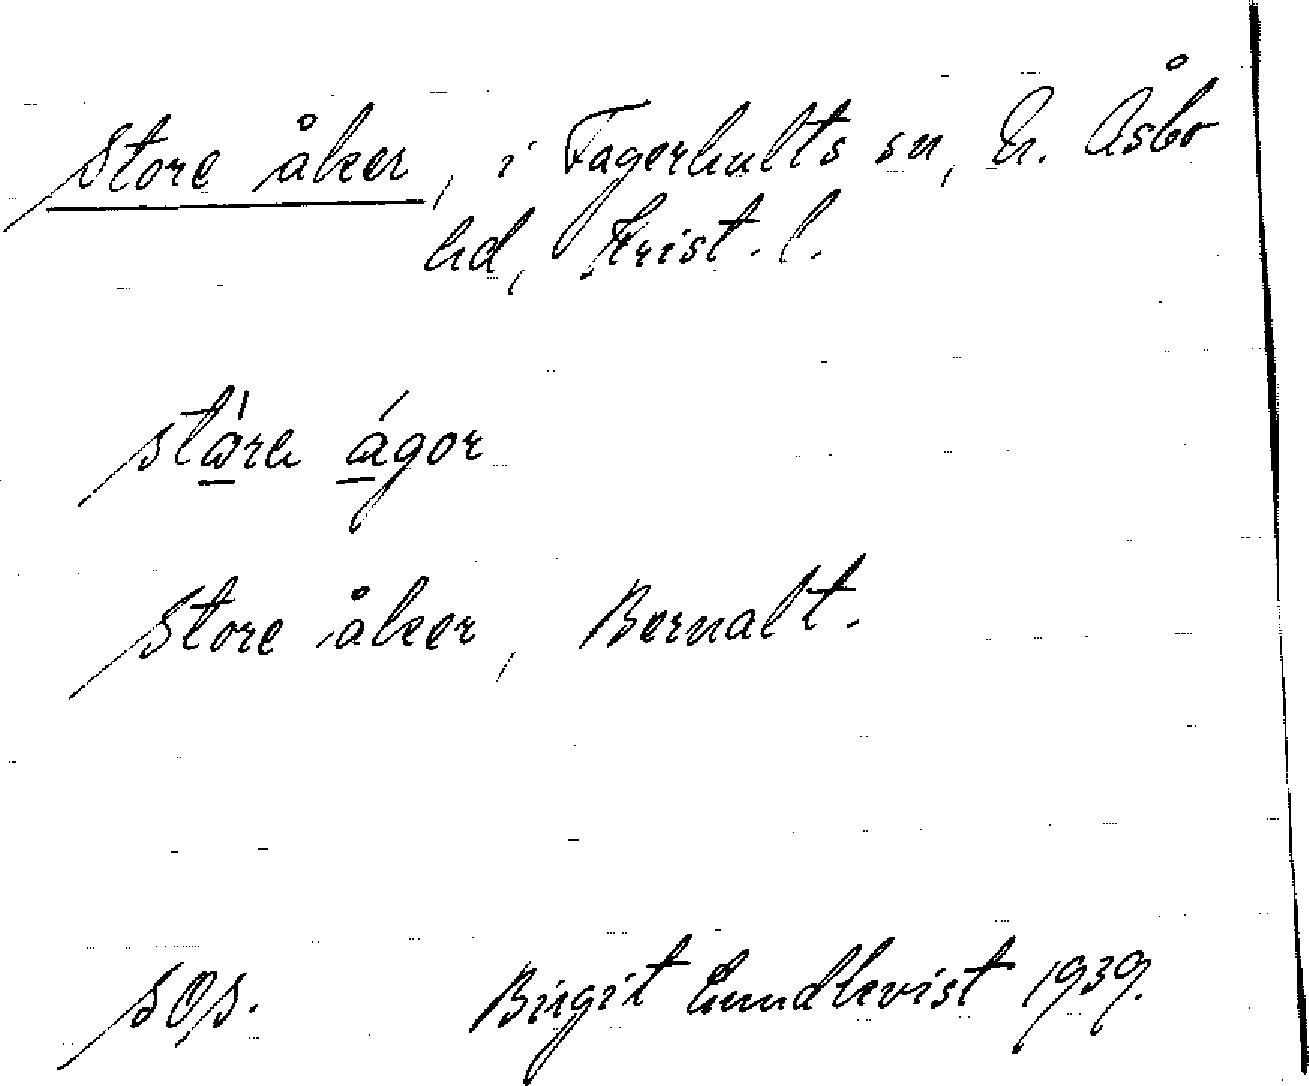 Store åker, i Fagerhults sn, N. Åsbo
hd, Krist. l.
ståra ágor
Store åker, Bernalt.
sOs. Birgit Lundkvist 1939.